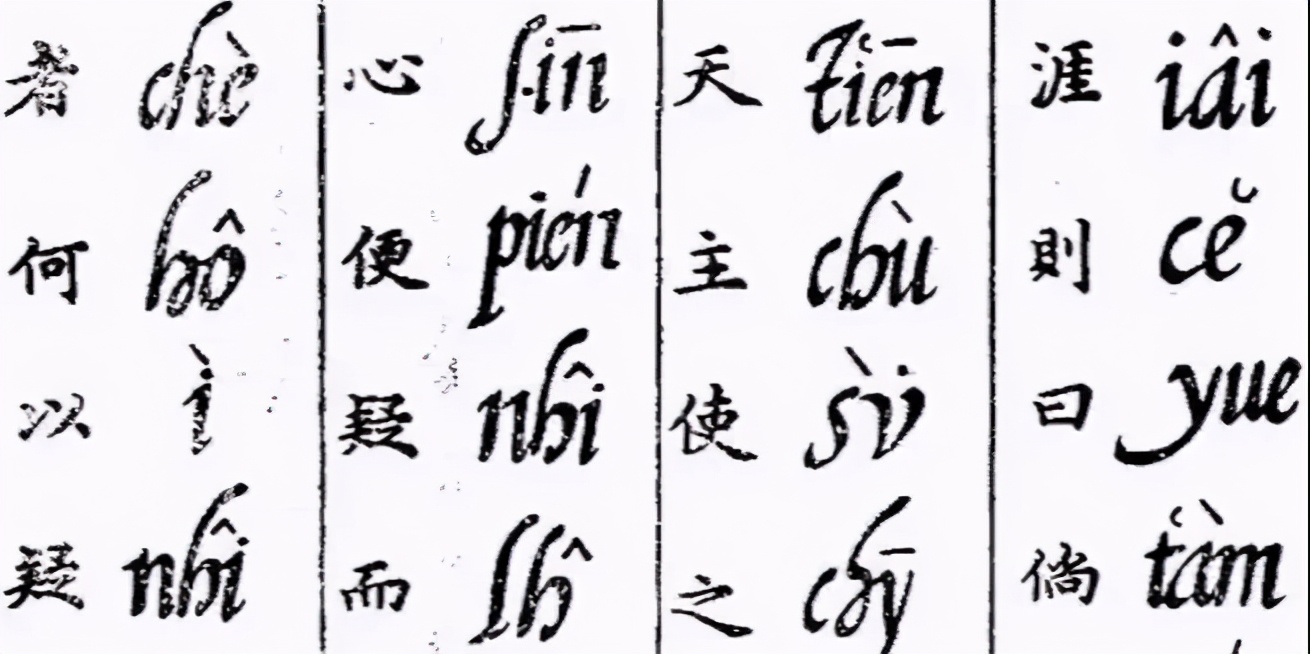 涯 iâi 則 cĕ 曰 yue 倘 t‘àm
天 t‘iēn 主 chù 使 sv̀ 之 chȳ
心 ſīn 便 pién 疑 nhî 而 lĥ
者 chè 何 hô 以 ì 疑 nhî